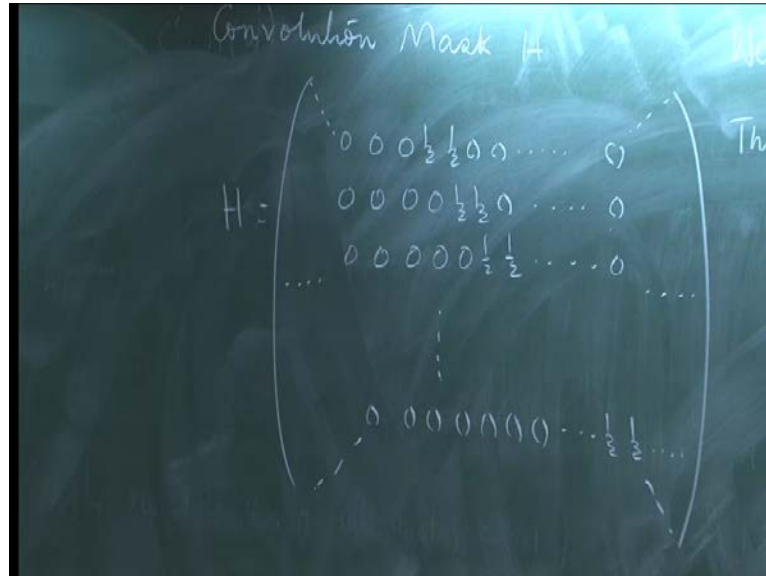 Convolution Mask H
0 0 0 ½ ½ 0 0 ..... 0
Th
H = 0 0 0 0 ½ ½ 0 .... 0
0 0 0 0 0 ½ ½ ..... 0
.... ....
0 0 0 0 0 0 0 ... ½ ½ ....